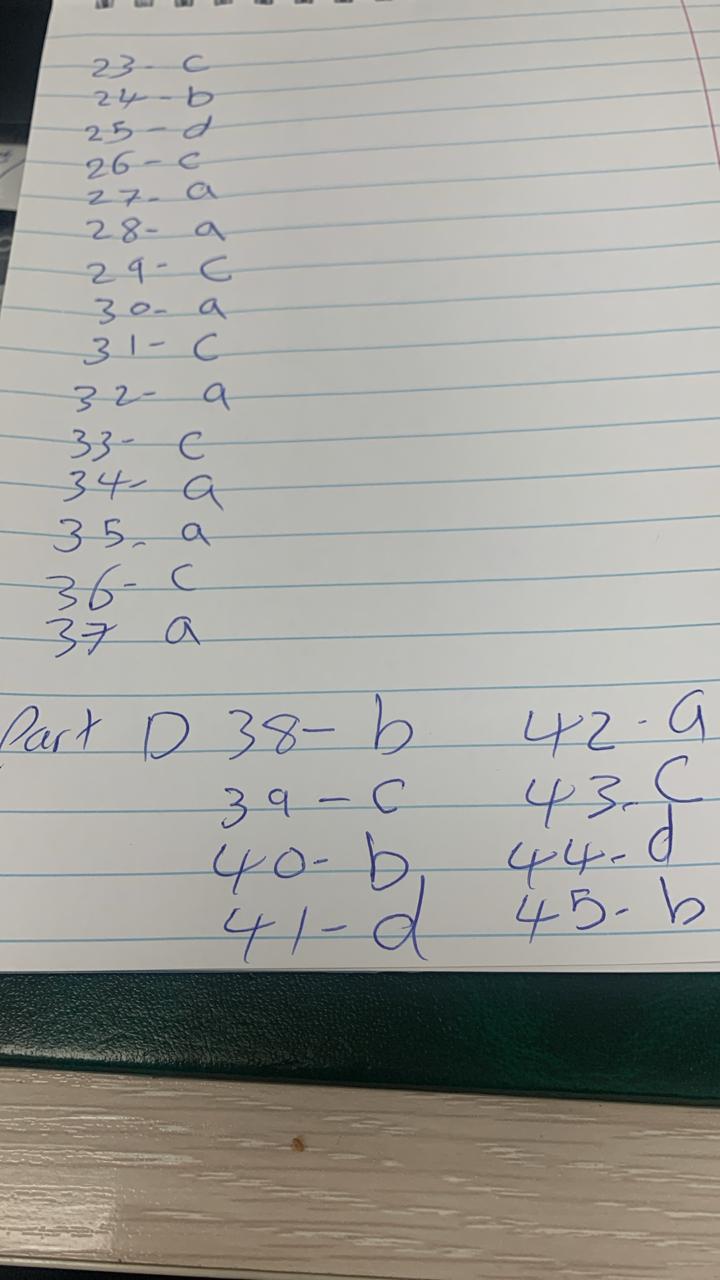 23- c
24- b
25- d
26- c
27- a
28- a
29- c
30- a
31- c
32- a
33- c
34- a
35- a
36- c
37 a
Part D 38- b 42- a
39- c 43- c
40- b 44- d
41- d 45- b